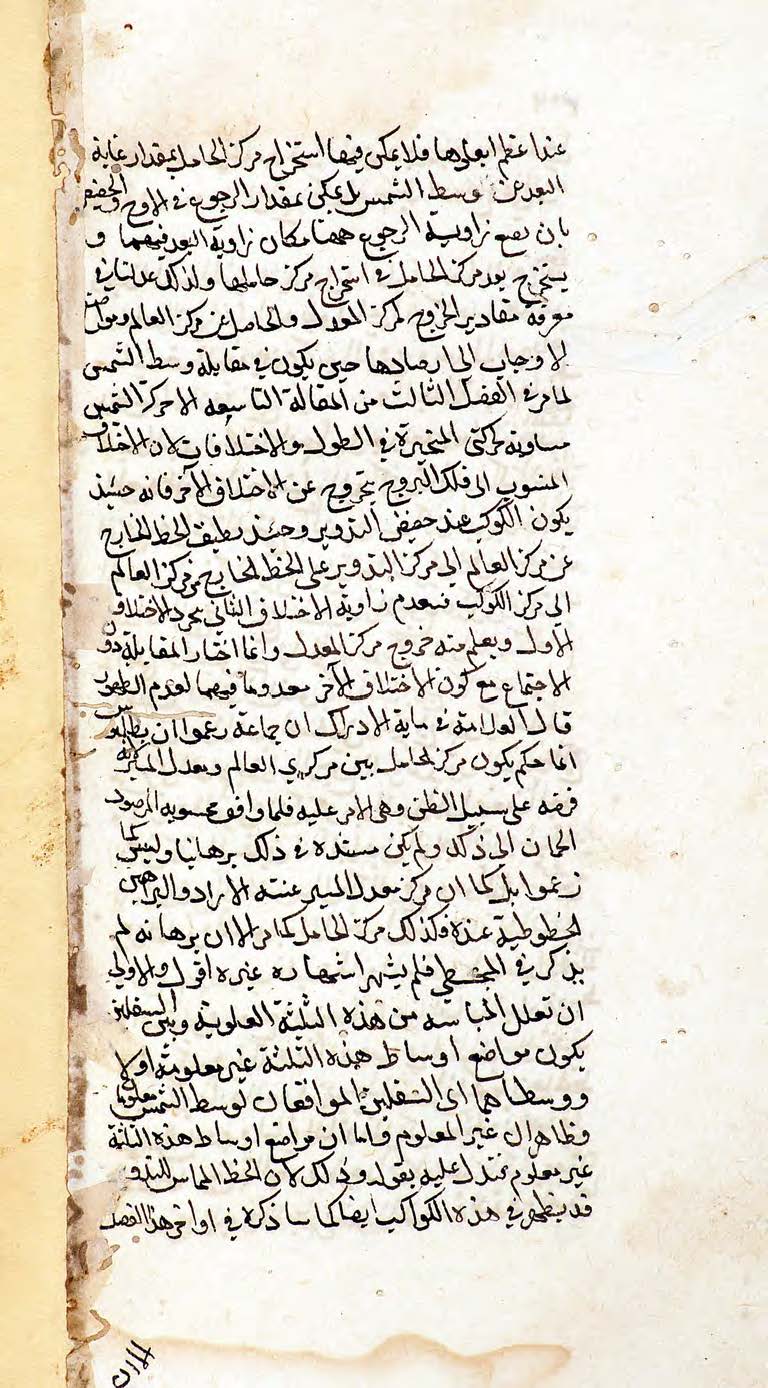 عند اعظم ابعادها فلا يمكن فيها استخراج مركز الحامل بمقدار غاية
البعد عن وسط الشمس بل يمكن بمقدار الرجوع في الاوج والحضيض
بان يضع زاوية الرجوع ههنا مكان زاوية البعد فيهما و
يستخرج بعد مركز الحامل في استخراج مركز حاملها ولذلك عدلنا في
معرفة مقادير الخروج لمركز المعدل والحامل عن مركز العالم ومواضع
الاوجات الى ارصادها حين يكون في مقابلة وسط الشمس
لما مر في الفصل الثالث من المقالة التاسعة ان حركة الشمس
مساوية لحركتي المتحيرة في الطول والاختلافات لان الاختلاف
المنسوب الى فلك البروج يتجرد عن الاختلاف الآخر فانه حينئذ
يكون الكوكب عند حضيض التدوير وحينئذ ينطبق الخط الخارج
عن مركز العالم الى مركز التدوير على الخط الخارج من مركز العالم
الى مركز الكوكب فتعدم زاوية الاختلاف الثاني بتجرد الاختلاف
الاول ويعلم منه خروج مركز المعدل وانما اختار المقابلة دون
الاجتماع مع كون الاختلاف الآخر معدوما فيهما لعدم الظهور
قال العلامة في نهاية الادراك ان جماعة زعموا ان بطلميوس
انما حكم بكون مركز الحامل بين مركزي العالم ومعدل المسير لانه
فرضه على سبيل الظن وهي الامر عليه فلما وافق محسوبه المرصود
اطمان الى ذلك ولم يكن مستنده في ذلك برهانيا وليس كما
زعموا بل كما ان مركز معدل المسير عينته الارصاد والبراهين
الخطوطية عنده فكذلك مركز الحامل كما مر الا ان برهانه لم
يذكر في المجسطي فلم يشتهر اشتهار غيره اقول والاولى
ان تعلل المباينة من هذه الثلثة العلوية وبين السفليين
بكون مواضع اوساط هذه الثلثة غير معلومة اولا
ووسطاهما اى السفليين الموافقان لوسط الشمس معلوما
وظاهر ان غير المعلوم واما ان مواضع اوساط هذه الثلثة
غير معلوم فتدل عليه بقوله وذلك لان الخط المماس للتدوير
قد يظهر في هذه الكواكب ايضا كما سنذكره في اواخر هذا الفصل
الا ان